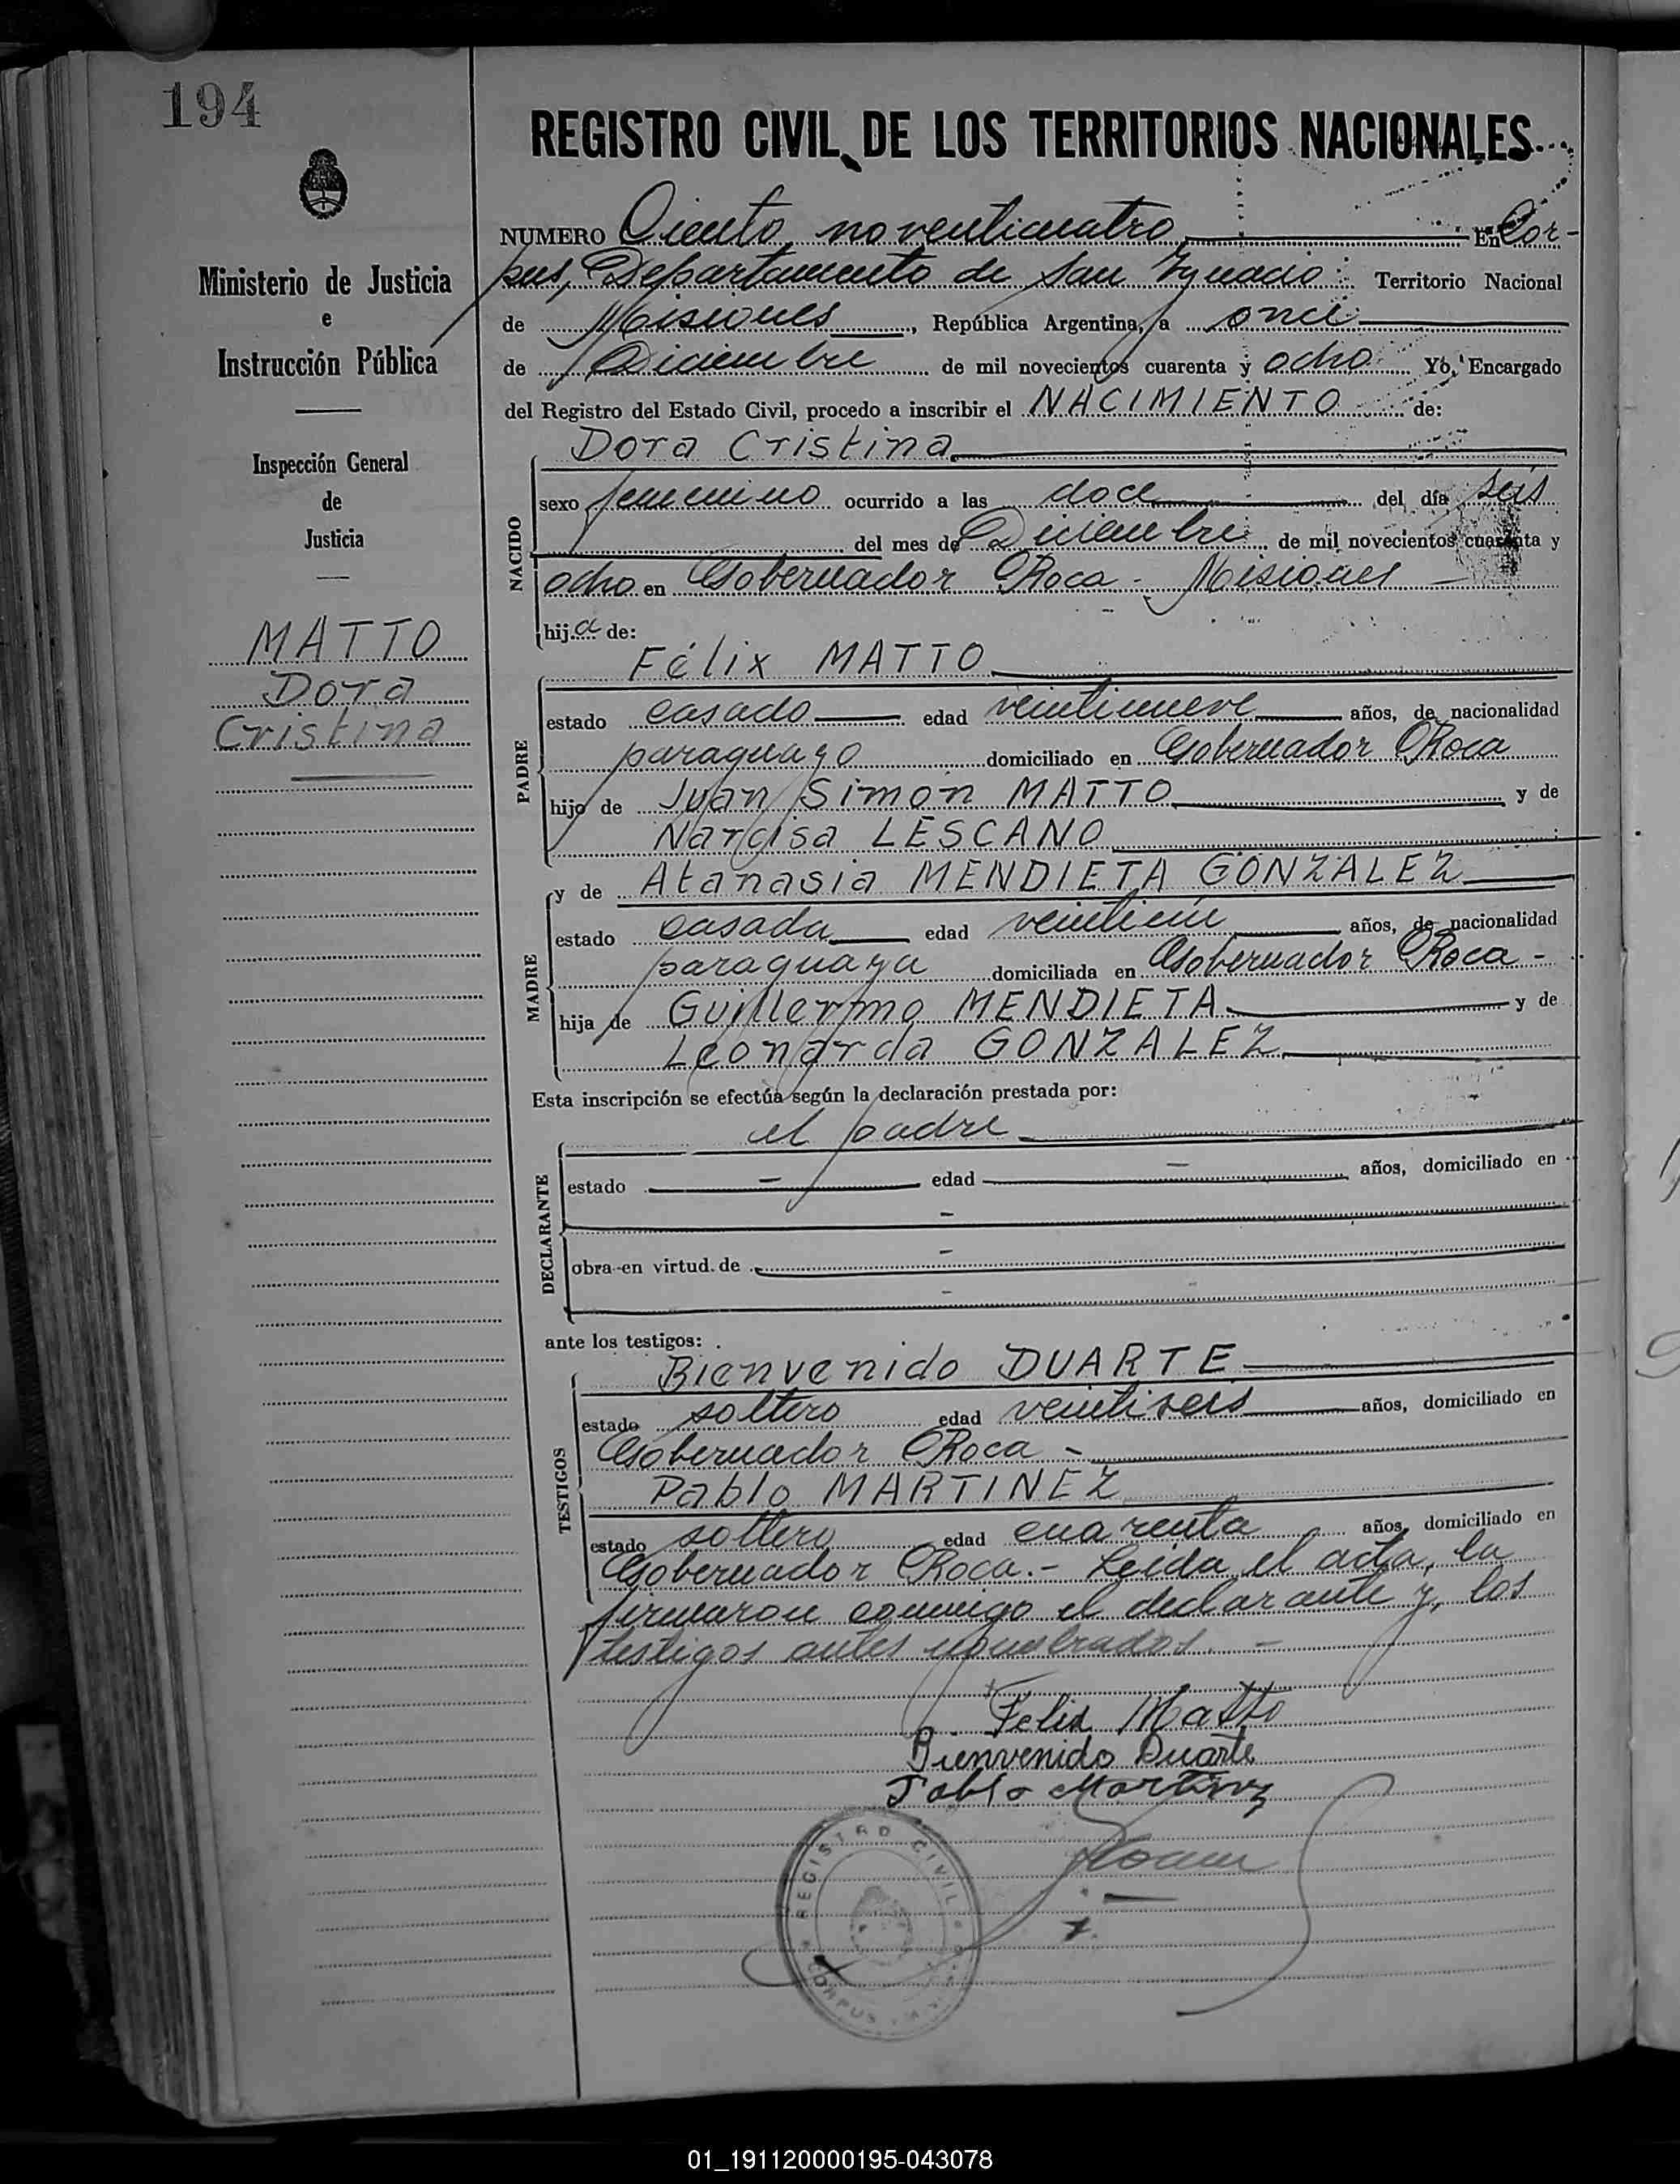 194
REGISTRO CIVIL DE LOS TERRITORIOS NACIONALES
Ministerio de Justicia
e
Instrucción Pública
Inspección General
de
Justicia
MATTO
Dora
Cristina
NUMERO Ciento noventicuatro En Cor-
pus, Departamento de San Ygnacio Territorio Nacional
de Misiones, República Argentina, a once
de Diciembre de mil novecientos cuarenta y ocho Yo, Encargado
del Registro del Estado Civil, procedo a inscribir el NACIMIENTO de:
NACIDO
Dora Cristina
sexo femenino ocurrido a las doce del día seis
del mes de Diciembre de mil novecientos cuarenta y
ocho en Gobernador Roca - Misiones -
hija de:
PADRE
Félix MATTO
estado casado edad veintinueve años, de nacionalidad
paraguayo domiciliado en Gobernador Roca
hijo de Juan Simón MATTO y de
Narcisa LESCANO
MADRE
y de Atanasia MENDIETA GONZALEZ
estado casada edad veintiún años, de nacionalidad
paraguaya domiciliada en Gobernador Roca -
hija de Guillermo MENDIETA y de
Leonarda GONZALEZ
Esta inscripción se efectúa según la declaración prestada por:
DECLARANTE
el padre
estado - edad - años, domiciliado en
-
obra en virtud de -
-
ante los testigos:
TESTIGOS
Bienvenido DUARTE
estado soltero edad veintiseis años, domiciliado en
Gobernador Roca -
Pablo MARTINEZ
estado soltero edad cuarenta años, domiciliado en
Gobernador Roca.- Leída el acta, la
firmaron conmigo el declarante y, los
testigos antes nombrados. -
Felix Matto
Bienvenido Duarte
Pablo Martinez
REGISTRO CIVIL
CORPUS
01_191120000195-043078